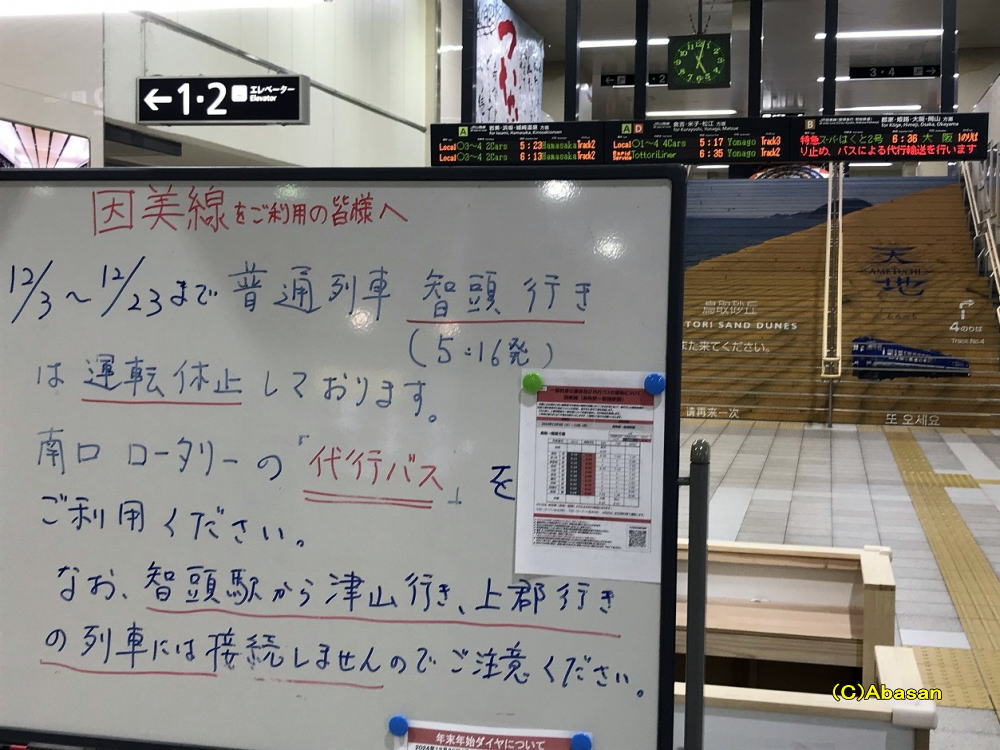 ←1・2 エレベーター
Elevator
3・4 →
岩美・浜坂・城崎温泉 方面
倉吉・米子・松江 方面
郡家・姫路・大阪・岡山 方面
for Kurayoshi, Yonago, Matsue
for Koge, Himeji, Osaka, Okayama
Local ○3~4 2Cars 5:23 Hamasaka Track2
Local ○3~4 2Cars 6:13 Hamasaka Track2
Local ○1~4 4Cars 5:17 Yonago Track3
Rapid Service TottoriLiner 6:35 Yonago Track2
特急スーパーはくと2号 6:36 大阪
り止め、バスによる代行輸送を行います
因美線をご利用の皆様へ
12/3~12/23まで 普通列車 智頭 行き
(5:16発)
は 運転休止 しております。
南口 ロータリーの「代行バス」を
ご利用ください。
なお、智頭駅から津山行き、上郡行き
の列車には接続しませんのでご注意ください。
年末年始ダイヤについて
天地
AMETUCHI
鳥取砂丘
TOTTORI SAND DUNES
また来てください。
请再来一次
또 오세요
4のりば
Track No.4
(C)Abasan